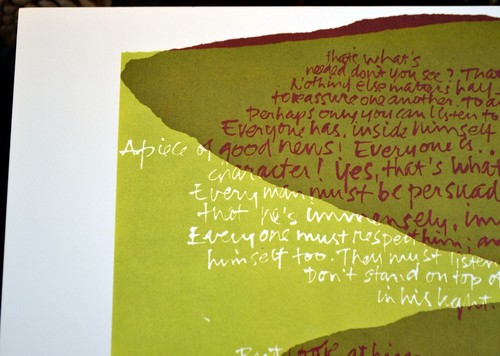 that's what's
needed don't you see? That
Nothing else matters half
to reassure one another. To a
Perhaps only you can listen to
Everyone has, inside himself
A piece of good news! Everyone is...
character! Yes, that's what
Every man must be persuad
that he's immensely, im
Everyone must respect him; an
himself too. They must listen
Don't stand on top of
in his light.
But look at him